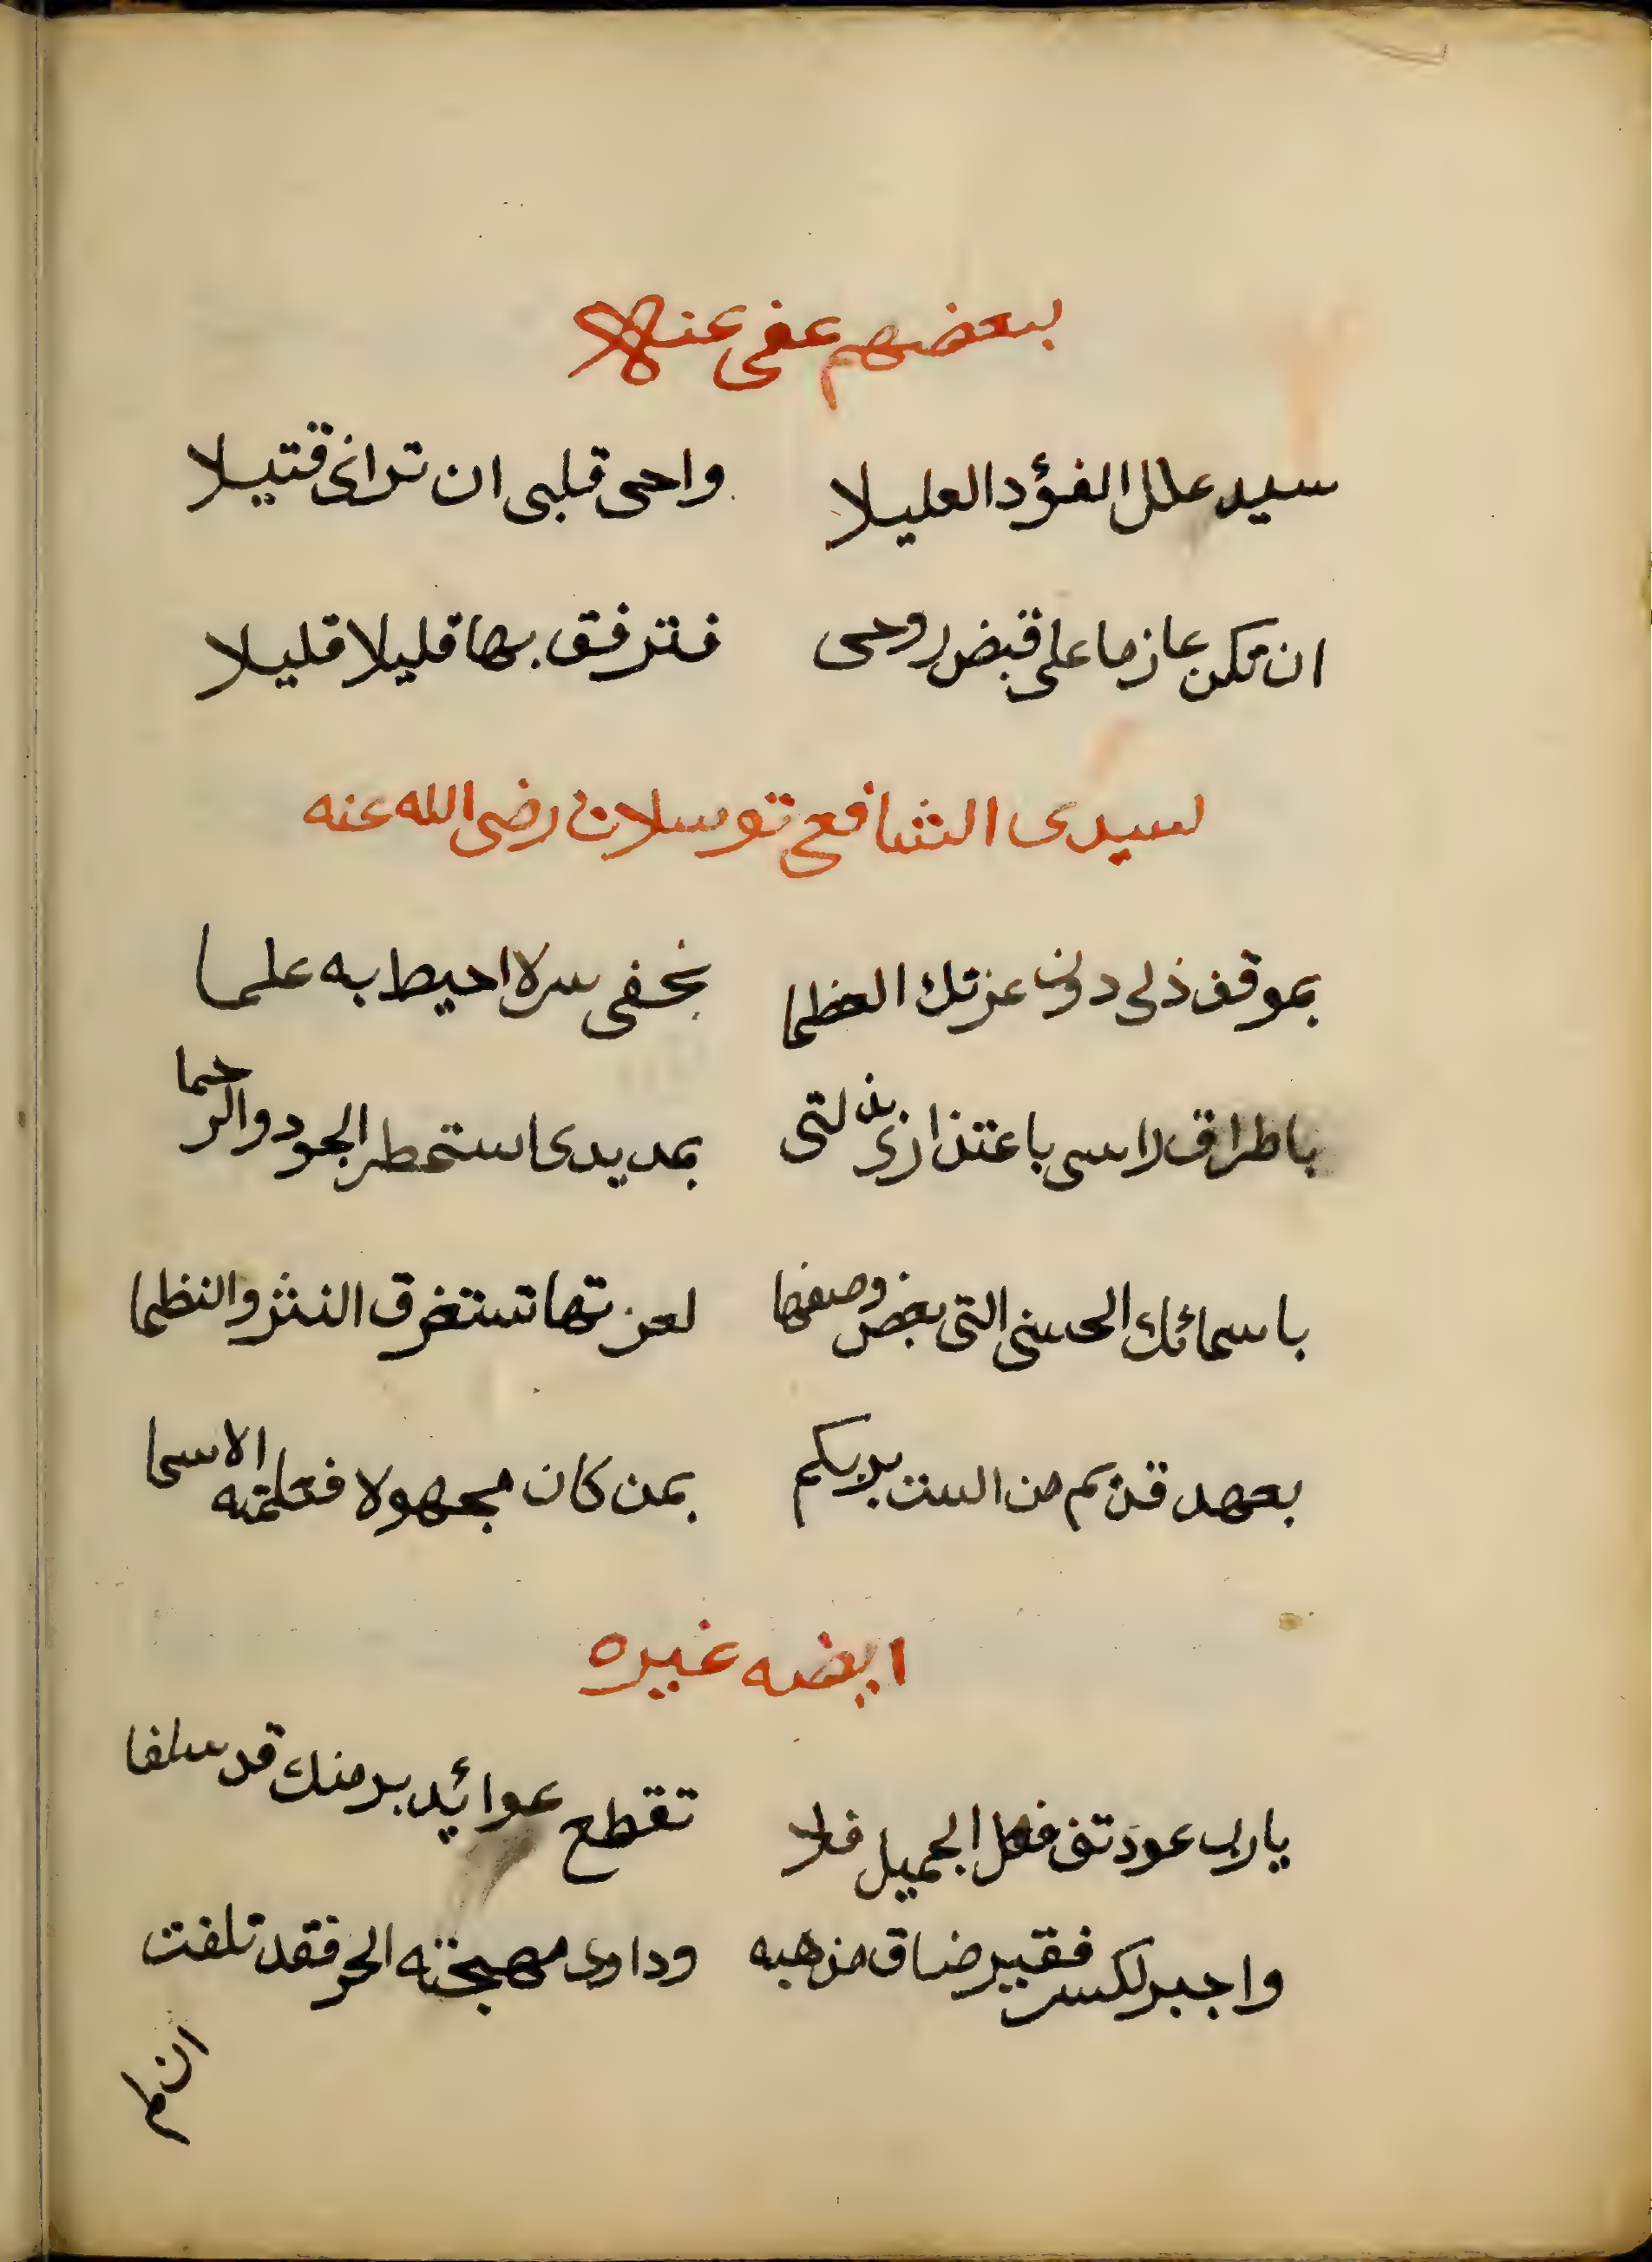 لبعضهم عفى عنه
سيد علل الفؤد العليلا واحى قلبى ان ترانى قتيلا
ان تكن عازما على قبض روحى فترفق بها قليلا قليلا
لسيدى الشافع توسلان رضى الله عنه
بموقف ذلى دون عزتك العظما بخفى سر لا احيط به علما
باطراق راسى باعتذارى بذلتى بمد يدى استمطر الجود والرحما
باسمائك الحسنى التى بعض وصفها لعزتها تستغرق النثر والنظما
بعهد قديم من الست بربكم بمن كان مجهولا فعلمته الاسما
ايضه غيره
يارب عودتنى فعل الجميل فلا تقطع عوائد بر منك قد سلفا
واجبر لكسر فقير ضاق مذهبه وداوى مهجته الحر فقد تلفت